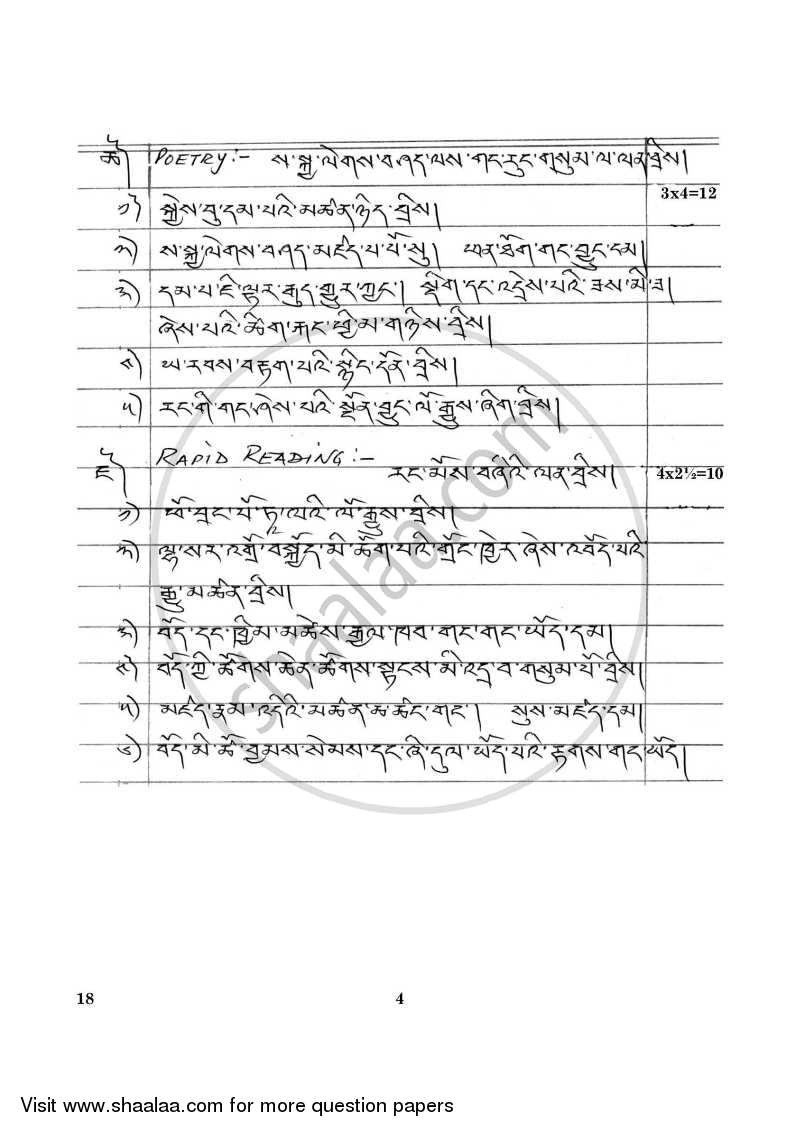 ཆོ། POETRY:- ས་སྐྱ་ལེགས་བཤད་ལས་གང་རུང་གསུམ་ལ་ལན་བྲིས།
3x4=12
༡) སྐྱེས་བུ་དམ་པའི་མཚན་ཉིད་བྲིས།
༢) ས་སྐྱ་ལེགས་བཤད་མཛད་པ་པོ་སུ། ཡན་ཐོག་གང་བྱུང་དམ།
༣) དམ་པ་ཇི་ལྟར་རྒུད་གྱུར་ཀྱང་། སྡིག་དང་འདྲེས་པའི་ཟས་མི་ཟ།
ཞེས་པའི་ཚིག་རྐང་ཕྱི་མ་གཉིས་བྲིས།
༤) ཡ་རབས་བརྟག་པའི་སྙིང་དོན་བྲིས།
༥) རང་གི་གང་ཤེས་པའི་སྔོན་བྱུང་ལོ་རྒྱུས་ཞིག་བྲིས།
ཇོ། RAPID READING:-
རང་མོས་བཞིའི་ལན་བྲིས། 4x2½=10
༡) ཕོ་བྲང་པོ་ཏཱ་ལའི་ལོ་རྒྱུས་བྲིས།
༢) ལྷ་སར་འགྲོ་བསྐྱོད་མི་ཆོག་པའི་གྲོང་ཁྱེར་ཞེས་འབོད་པའི་
རྒྱུ་མཚན་བྲིས།
༣) བོད་དང་ཁྱིམ་མཚེས་རྒྱལ་ཁབ་གང་གང་ཡོད་དམ།
༤) བོད་ཀྱི་ཚོགས་ཆེན་ཚོགས་སྟངས་མི་འདྲ་བ་གསུམ་པོ་བྲིས།
༥) མཛད་རྣམ་འདིའི་མཚན་ཆ་ཚང་གང་། སུས་མཛད་དམ།
༦) བོད་མི་ཚོ་བྱམས་སེམས་དང་ཞི་དུལ་ཡོད་པའི་རྟགས་གང་ཡོད།
shaalaa.com
18 4
Visit www.shaalaa.com for more question papers